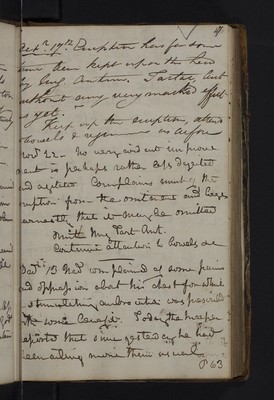 41
Octr 17th Eruption has for some
time been kept up on the head
by Ung. Antim. Tartar. but
without any very marked effect
as yet.
Keep up the eruption, attend
bowels & as before
Nov 22 No very evident improve
ment is perhaps rather less dejected
and agitated Complains much of the
eruption from the ointment and begs
earnestly that it may be omitted
Omitt Ung Tart. Ant.
Continue attention to bowels &c
Decr 13 Has complained of some pain
and oppression about his chest for which
stimulating embrocation was prescribed
with some benefit. Today the keeper
reports that since yesterday he has
been ailing more than usual
P 63